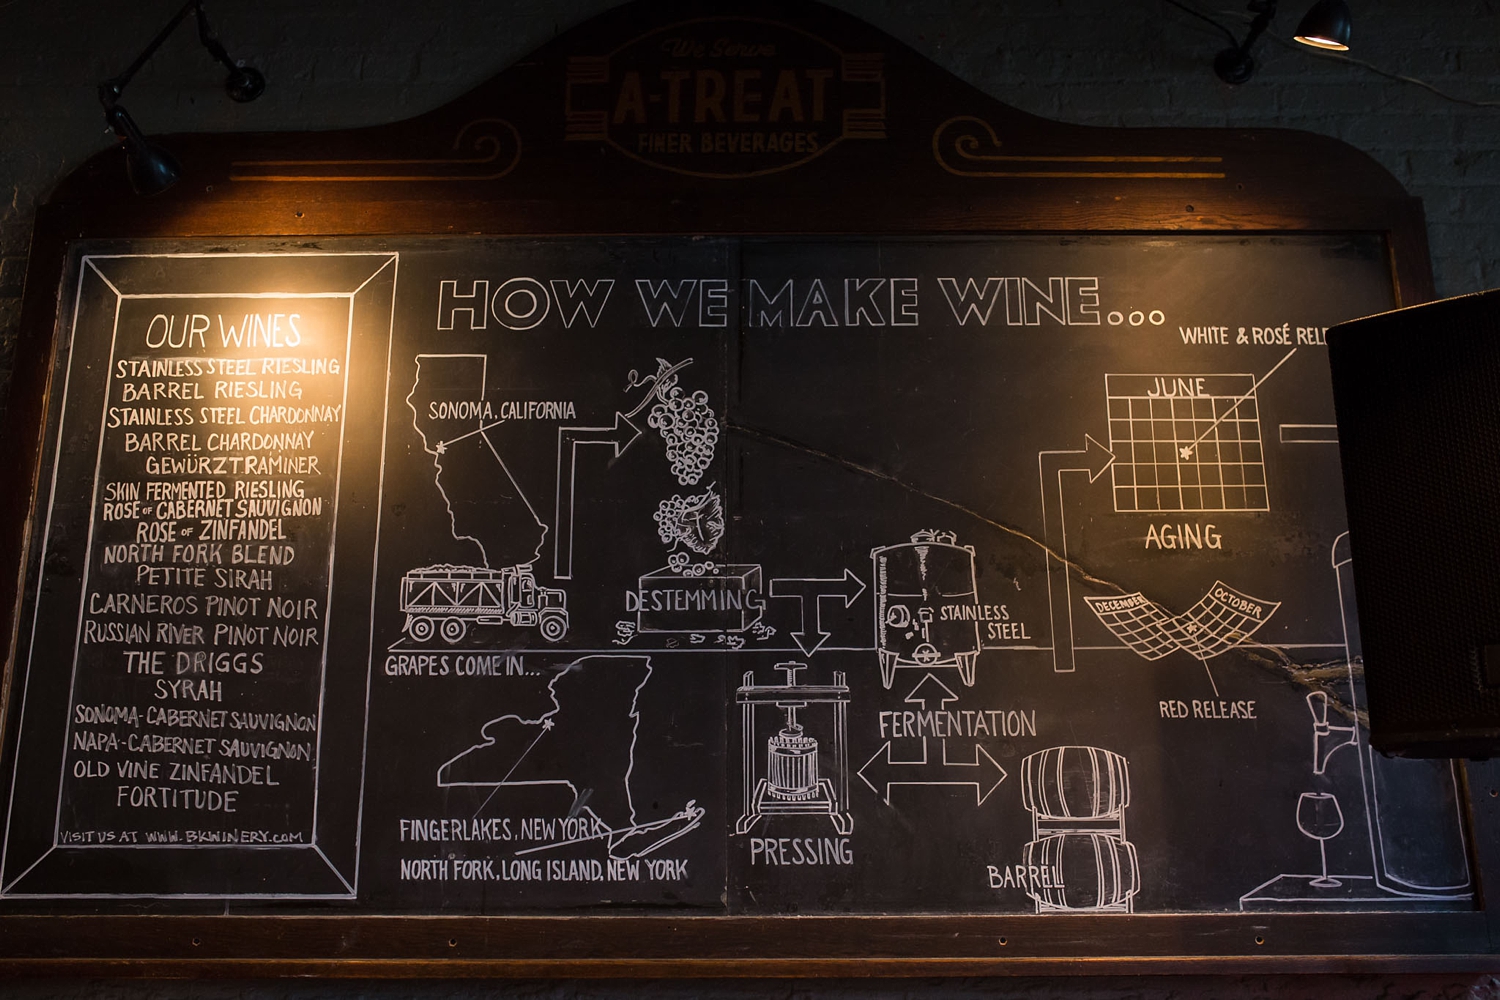 We Serve
A-TREAT
FINER BEVERAGES
OUR WINES
STAINLESS STEEL RIESLING
BARREL RIESLING
STAINLESS STEEL CHARDONNAY
BARREL CHARDONNAY
GEWÜRZTRAMINER
SKIN FERMENTED RIESLING
ROSE OF CABERNET SAUVIGNON
ROSE OF ZINFANDEL
NORTH FORK BLEND
PETITE SIRAH
CARNEROS PINOT NOIR
RUSSIAN RIVER PINOT NOIR
THE DRIGGS
SYRAH
SONOMA-CABERNET SAUVIGNON
NAPA-CABERNET SAUVIGNON
OLD VINE ZINFANDEL
FORTITUDE
VISIT US AT WWW.BKWINERY.COM
HOW WE MAKE WINE...
SONOMA, CALIFORNIA
GRAPES COME IN...
FINGERLAKES, NEW YORK
NORTH FORK, LONG ISLAND, NEW YORK
DESTEMMING
PRESSING
STAINLESS
STEEL
FERMENTATION
BARREL
WHITE & ROSÉ REL
JUNE
AGING
DECEMBER
OCTOBER
RED RELEASE